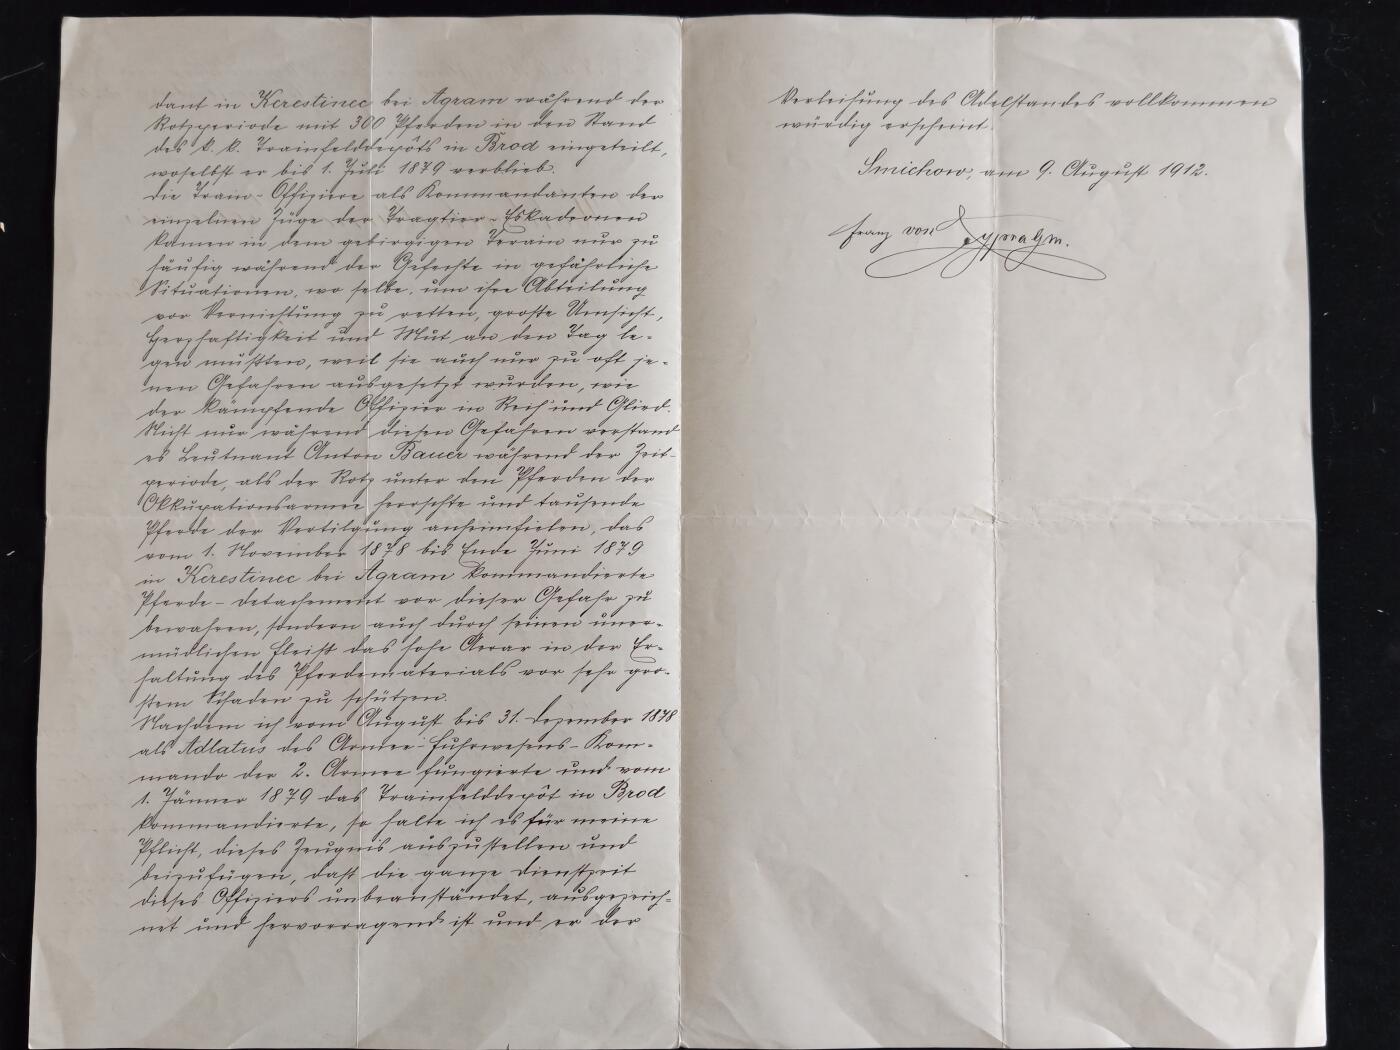 dant in Kerestinec bei Agram während der
Rotzperiode mit 300 Pferden in den Stand
des k. k. Trainfelddepôts in Brod eingeteilt,
woselbst er bis 1. Juli 1879 verblieb.
Die Train-Offiziere als Kommandanten der
einzelnen Züge der Tragtier-Eskadronen
kamen in dem gebirgigen Terrain nur zu
häufig während der Gefechte in gefährliche
Situationen, wo selbe, um ihre Abteilung
vor Vernichtung zu retten, große Umsicht,
Herzhaftigkeit und Mut an den Tag le-
gen mußten, weil sie auch nur zu oft je-
nen Gefahren ausgesetzt wurden, wie
der kämpfende Offizier in Reih' und Glied.
Nicht nur während diesen Gefahren verstand
es Leutnant Anton Bauer während der Zeit-
periode, als der Rotz unter den Pferden der
Okkupationsarmee herrschte und tausende
Pferde der Vertilgung anheimfielen, das
vom 1. November 1878 bis Ende Juni 1879
in Kerestinec bei Agram kommandierte
Pferde-Detachement vor dieser Gefahr zu
bewahren, sondern auch durch seinen uner-
müdlichen Fleiß das hohe Aerar in der Er-
haltung des Pferdematerials vor sehr gro-
ßem Schaden zu schützen.
Nachdem ich vom August bis 31. Dezember 1878
als Adlatus des Armee-Fuhrwesens-Kom-
mando der 2. Armee fungierte und vom
1. Jänner 1879 das Trainfelddepôt in Brod
kommandierte, so halte ich es für meine
Pflicht, dieses Zeugnis auszustellen und
beizufügen, daß die ganze Dienstzeit
dieses Offiziers unbeanständet, ausgezeich-
net und hervorragend ist und er der
Verleihung des Adelstandes vollkommen
würdig erscheint.
Smichow, am 9. August 1912.
Franz von